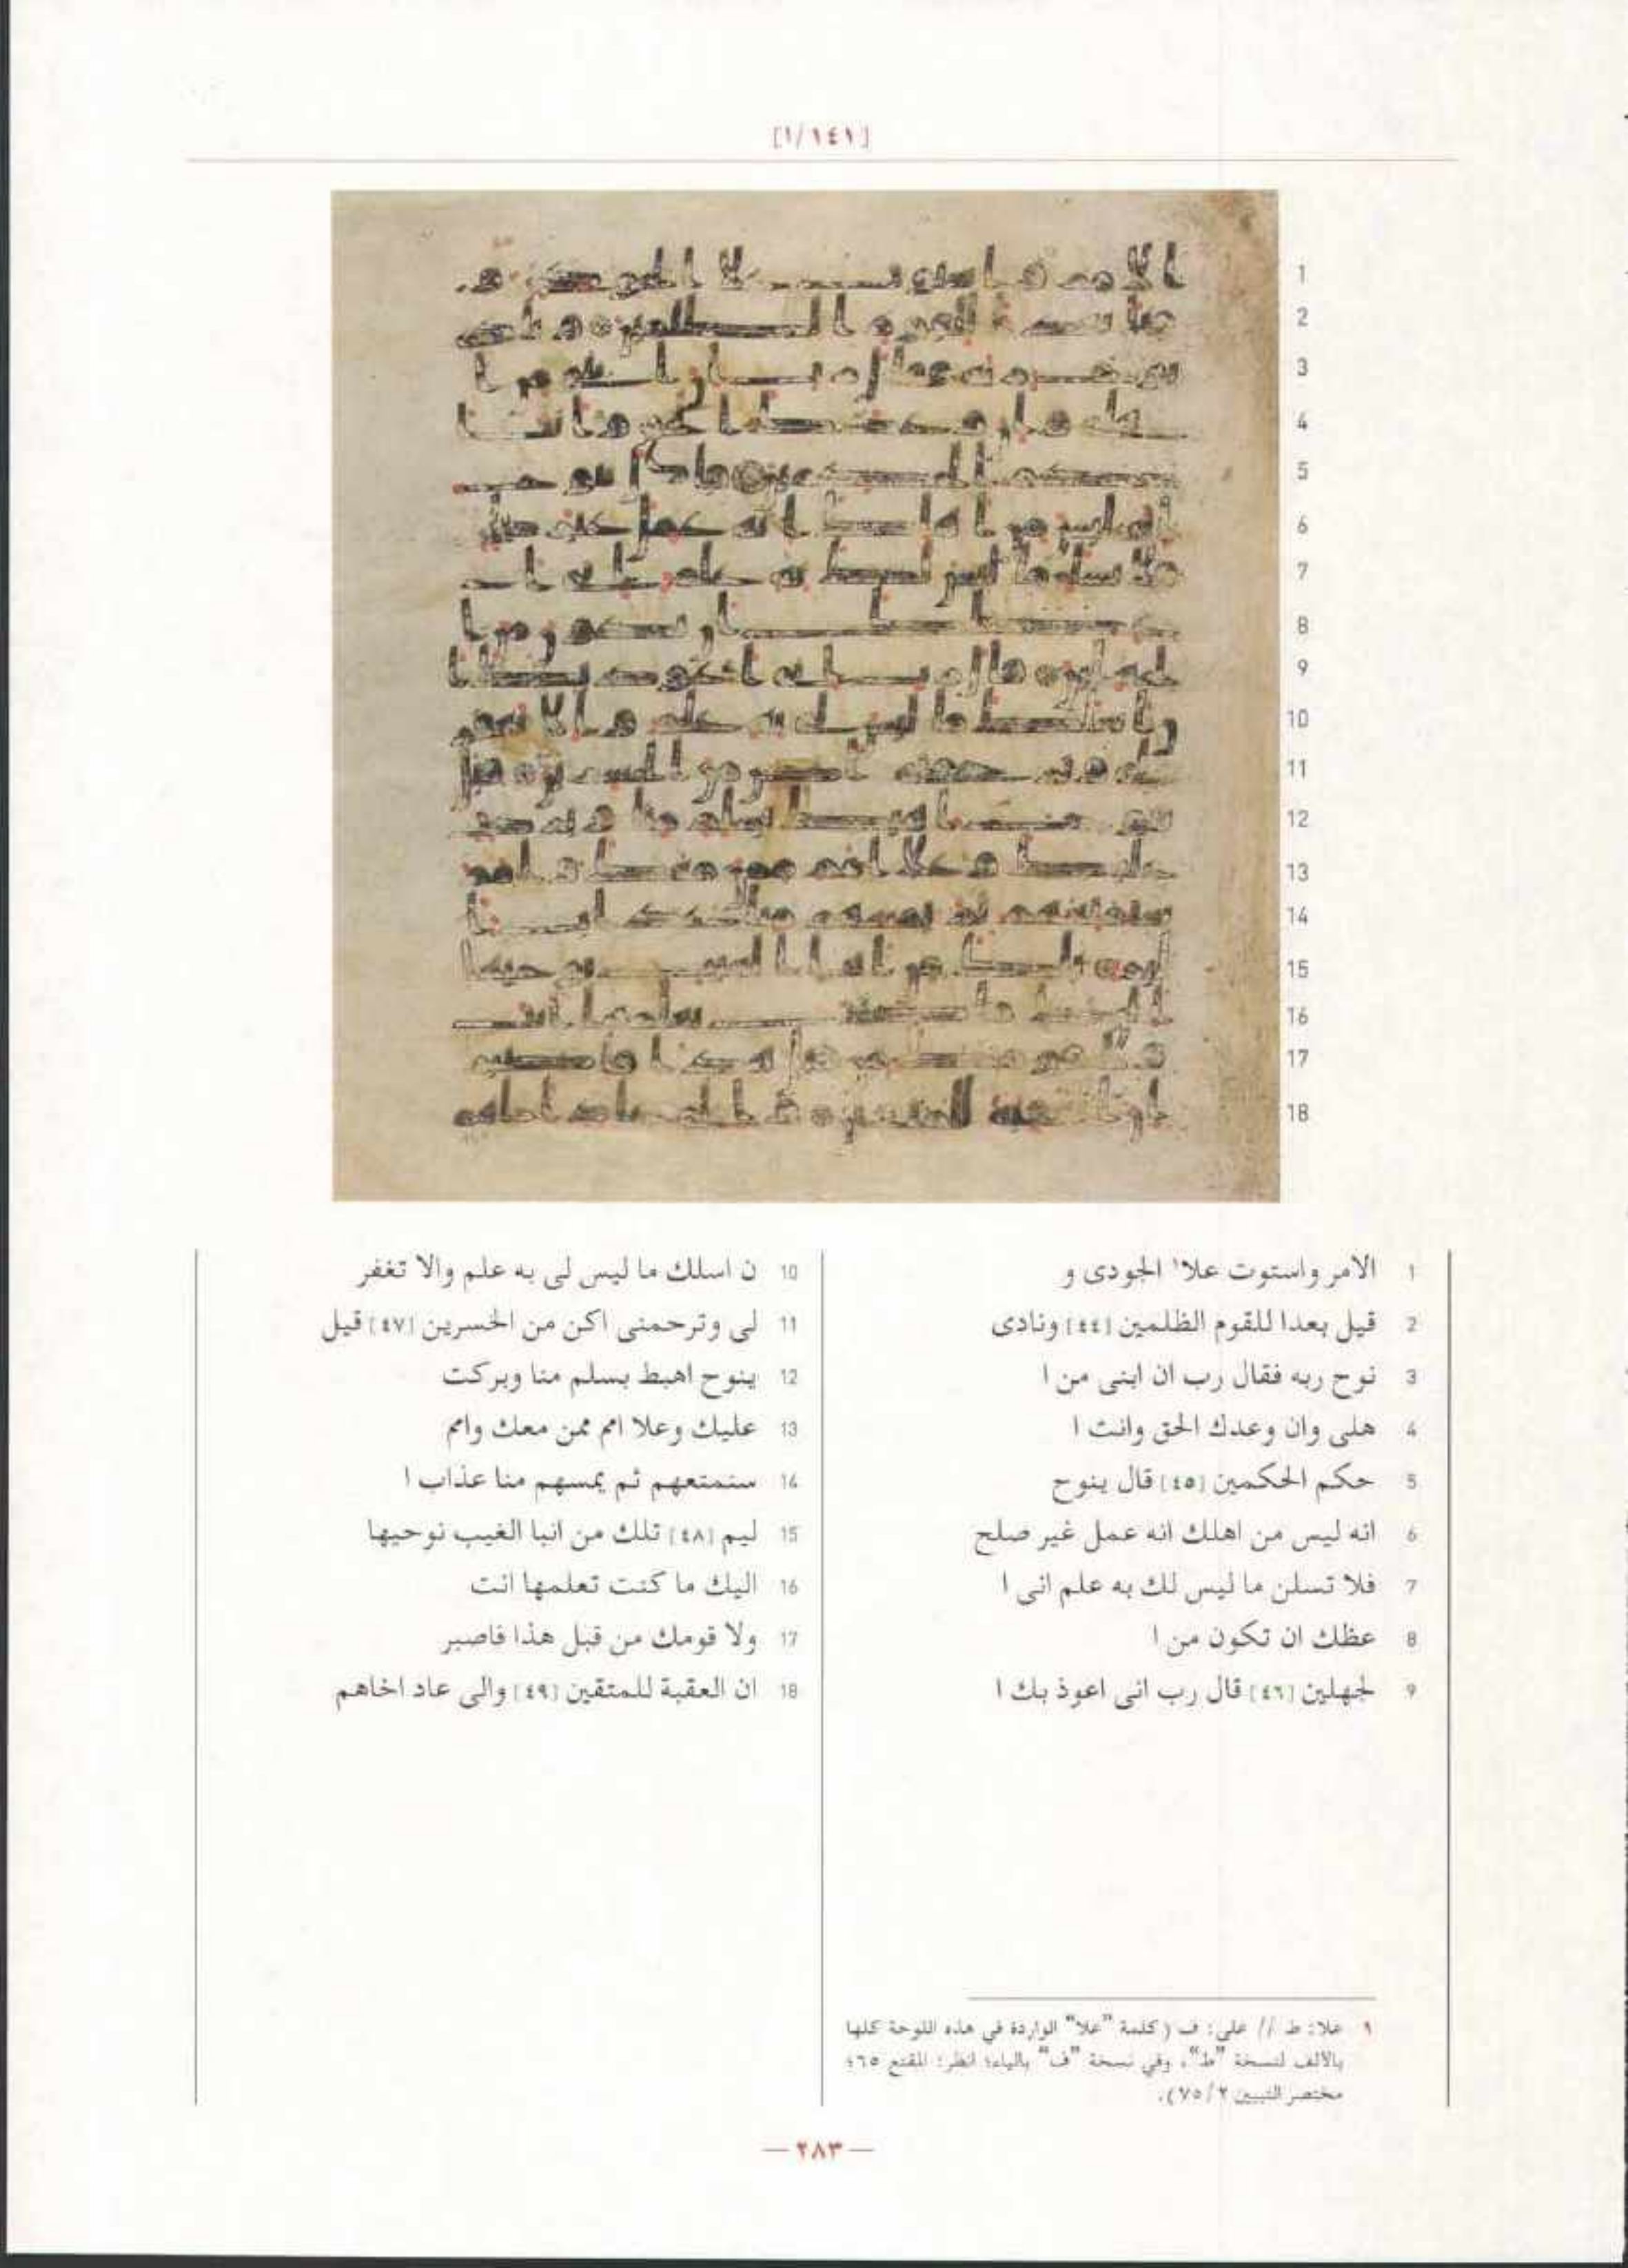 [١/١٤١]
1
2
3
4
5
6
7
8
9
10
11
12
13
14
15
16
17
18
1 الامر واستوت علا¹ الجودى و
2 قيل بعدا للقوم الظلمين [٤٤] ونادى
3 نوح ربه فقال رب ان ابنى من ا
4 هلى وان وعدك الحق وانت ا
5 حكم الحكمين [٤٥] قال ينوح
6 انه ليس من اهلك انه عمل غير صلح
7 فلا تسلن ما ليس لك به علم انى ا
8 عظك ان تكون من ا
9 لجهلين [٤٦] قال رب انى اعوذ بك ا
10 ن اسلك ما ليس لى به علم والا تغفر
11 لى وترحمنى اكن من الخسرين [٤٧] قيل
12 ينوح اهبط بسلم منا وبركت
13 عليك وعلا امم ممن معك وامم
14 سنمتعهم ثم يمسهم منا عذاب ا
15 ليم [٤٨] تلك من انبا الغيب نوحيها
16 اليك ما كنت تعلمها انت
17 ولا قومك من قبل هذا فاصبر
18 ان العقبة للمتقين [٤٩] والى عاد اخاهم
١ علا: ط // على: ف (كلمة "علا" الواردة في هذه اللوحة كلها
بالألف لنسخة "ط"، وفي نسخة "ف" بالياء؛ انظر: المقنع ٦٥؛
مختصر التبيين ٢/٧٥).
— ٢٨٣ —